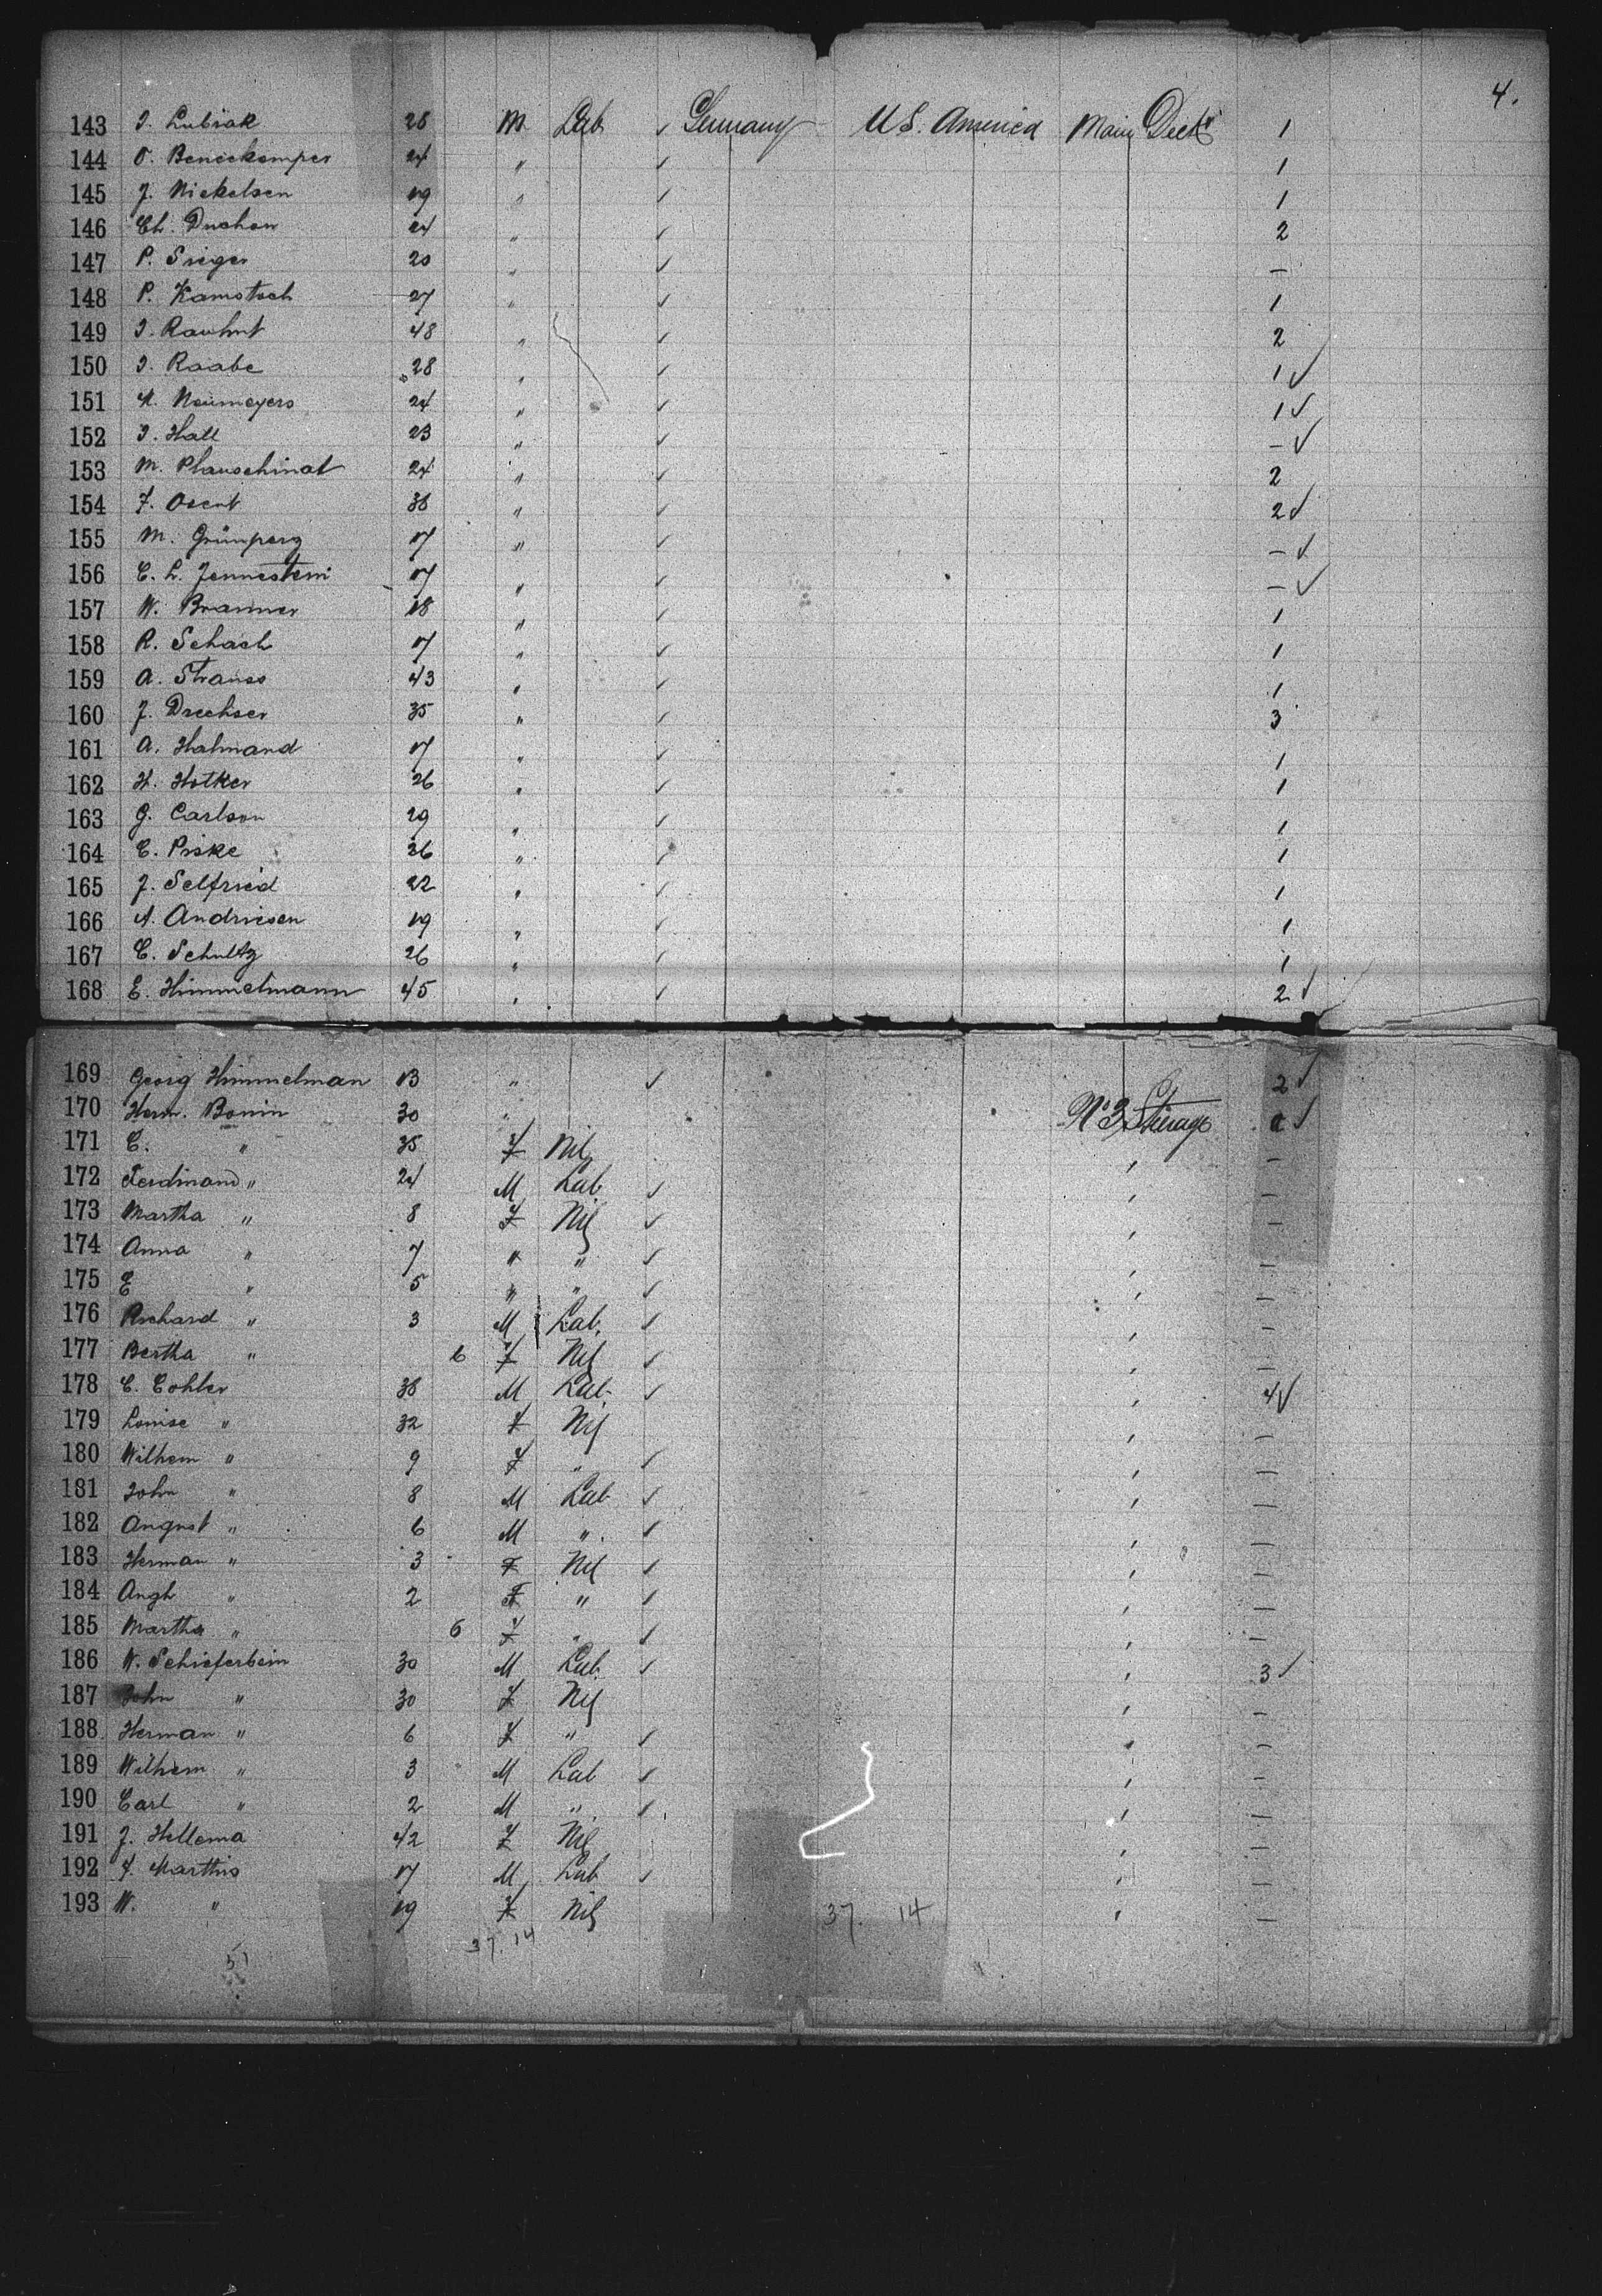 4.
143 J. Lubiak 28 M Lab ✓ Germany U.S. America Main Deck 1
144 O. Beneekamper 24 " ✓ 1
145 J. Nickelsen 19 " ✓ 1
146 Ch. Duchow 24 " ✓ 2
147 P. Sieger 20 " ✓ —
148 P. Kamstoch 27 " ✓ 1
149 J. Rawhut 48 " ✓ 2
150 J. Raabe 28 " ✓ 1 ✓
151 N. Neumeyers 24 " ✓ 1 ✓
152 J. Hall 23 " ✓ — ✓
153 M. Plauschinat 24 " ✓ 2
154 F. Osent 38 " ✓ 2 ✓
155 M. Grünperg 17 " ✓ — ✓
156 C. L. Jennestem 17 " ✓ — ✓
157 W. Branner 18 " ✓ 1
158 R. Schach 17 " ✓ 1
159 A. Strauss 43 " ✓ 1
160 J. Drechser 35 " ✓ 3
161 A. Halmand 17 " ✓ 1
162 H. Hotker 26 " ✓ 1
163 G. Carlson 29 " ✓ 1
164 E. Piske 26 " ✓ 1
165 J. Selfried 22 " ✓ 1
166 A. Andriesen 19 " ✓ 1
167 C. Schultz 26 " ✓ 1
168 E. Himmelmann 45 " ✓ 2 ✓
169 Georg Himmelman 13 " ✓ 2 ✓
170 Herm. Bonin 30 " No 3 Stierage ✓
171 C. " 35 F Nil " —
172 Ferdinand " 24 M Lab ✓ " —
173 Martha " 8 F Nil ✓ " —
174 Anna " 7 " " ✓ " —
175 E " 5 " " ✓ " —
176 Richard " 3 M Lab. ✓ " —
177 Bertha " 6 F Nil ✓ " —
178 C. Cohler 38 M Lab. ✓ " 4 ✓
179 Louise " 32 F Nil " —
180 Wilhem " 9 F " ✓ " —
181 John " 8 M Lab ✓ " —
182 August " 6 M " ✓ " —
183 Herman " 3 F Nil ✓ " —
184 Augh " 2 F " ✓ " —
185 Martha " 6 F " ✓ " —
186 W. Schieferbein 30 M Lab. ✓ " 3 ✓
187 John " 30 F Nil " —
188 Herman " 6 F " ✓ " —
189 Wilhem " 3 M Lab ✓ " —
190 Carl " 2 M " ✓ " —
191 J. Hellema 42 F Nil " —
192 F. Marthis 17 M Lab ✓ " —
193 W. " 19 F Nil " —
37. 14
37. 14
51